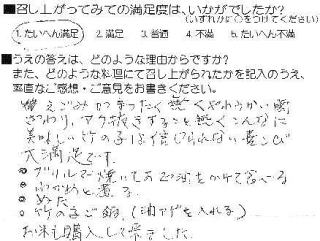 ■召し上がってみての満足度は、いかがでしたか?
(いずれかに○をつけてください)
1. たいへん満足 2. 満足 3. 普通 4. 不満 5. たいへん不満
■うえの答えは、どのような理由からですか?
また、どのような料理にて召し上がられたかを記入のうえ、
率直なご感想・ご意見をお書きください。
えごみが まったく 無く やわらかい
ざわり、アク抜きすること 無く こんなに
美味しい竹の子は信じられない 喜こび
大満足です。
• グリルで焼いて して食べる
• わかめと煮る。
• ぬた
• 竹の子ご飯、(油アゲを入れる)
お米も購入して